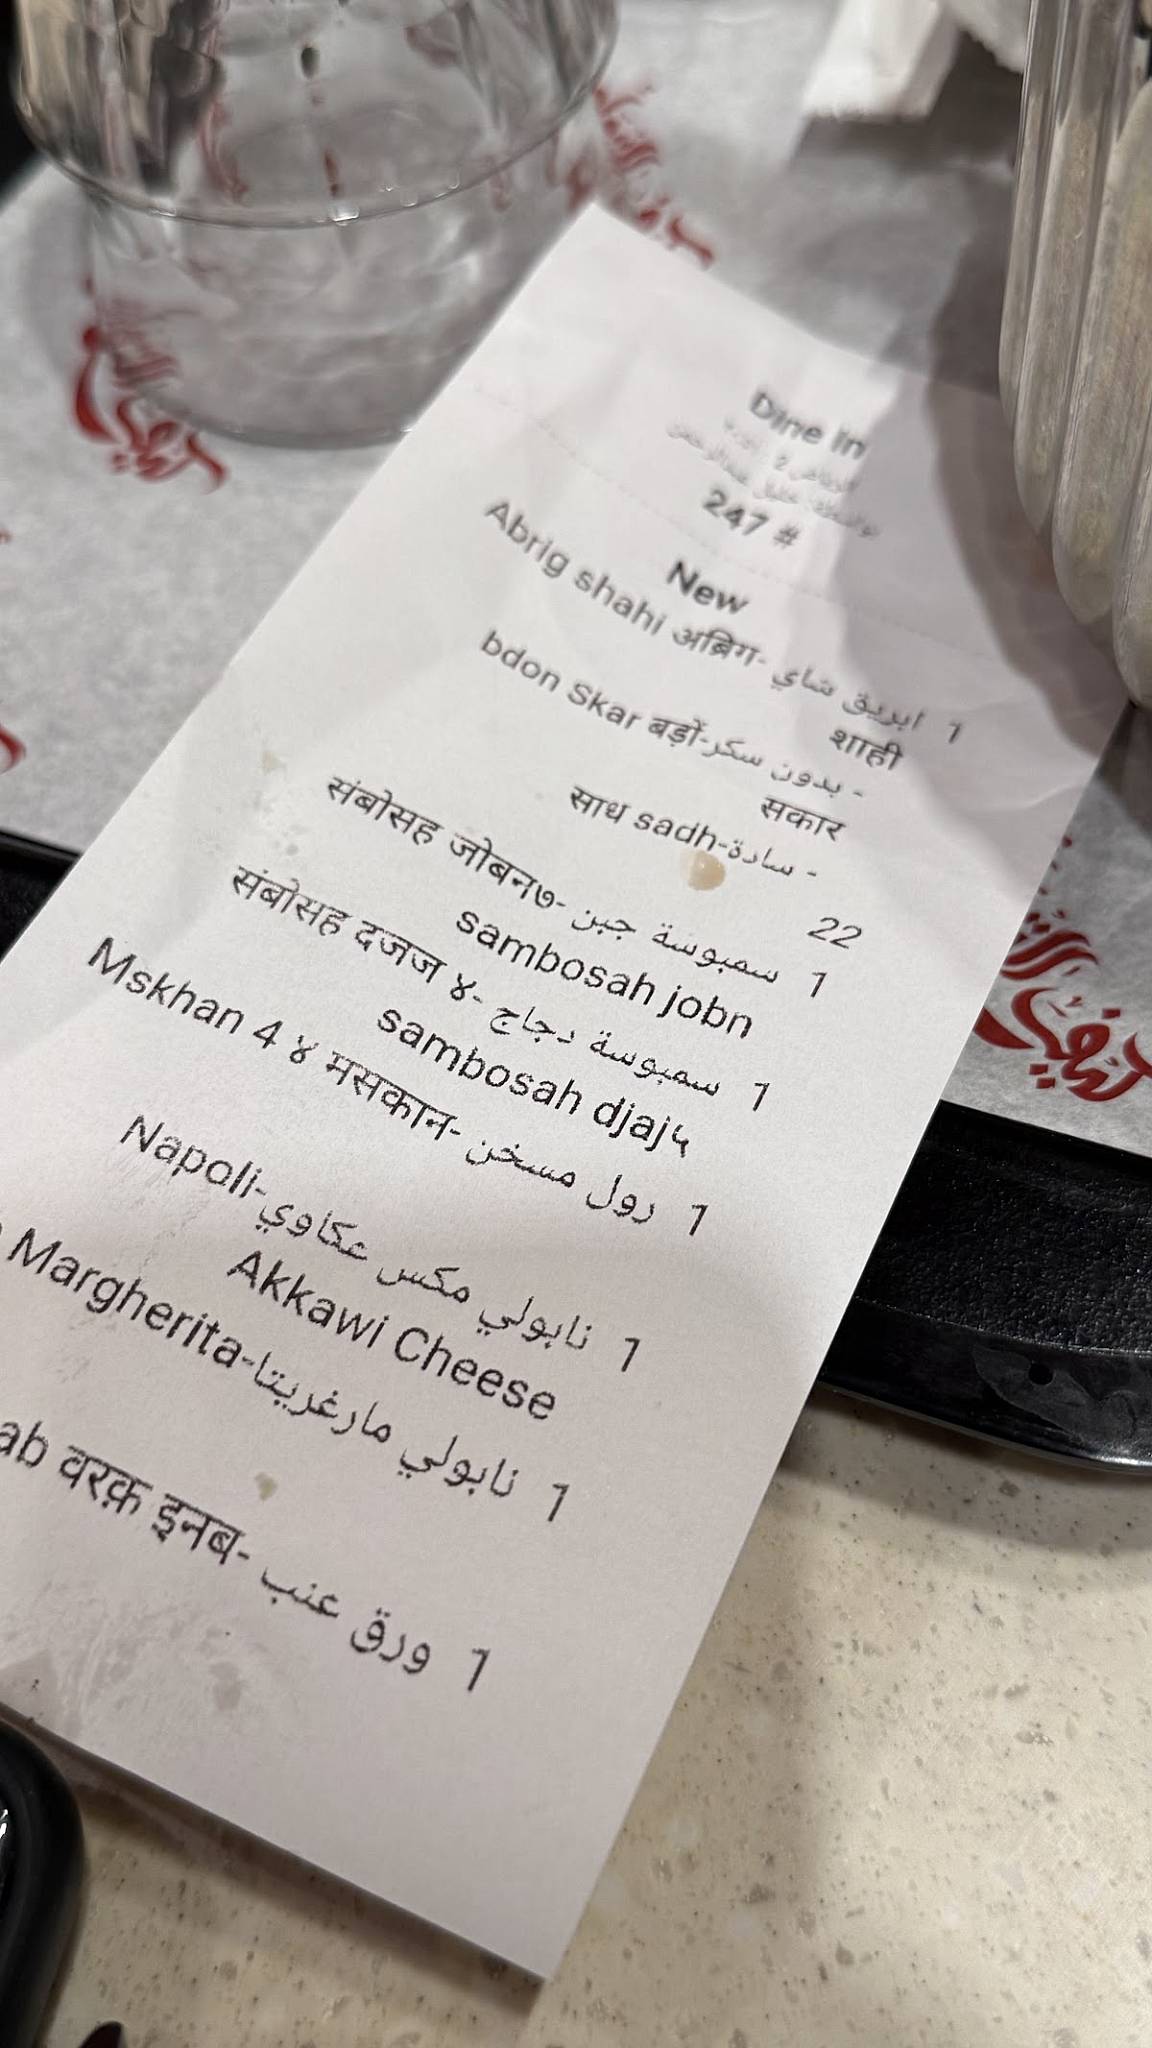 Dine in
247 #
New
1 ابريق شاي -अब्रिग Abrig shahi
शाही
- بدون سكر-बड़ों bdon Skar
सकार
- سادة-sadh साध
22
1 سمبوسة جبن -संबोसह जोबन७
sambosah jobn
1 سمبوسة دجاج -संबोसह दजज ४
sambosah djaj५
1 رول مسخن -Mskhan 4 ४ मसकान
1 نابولي مكس عكاوي-Napoli
Akkawi Cheese
1 نابولي مارغريتا-Margherita
1 ورق عنب -वरक़ इनब